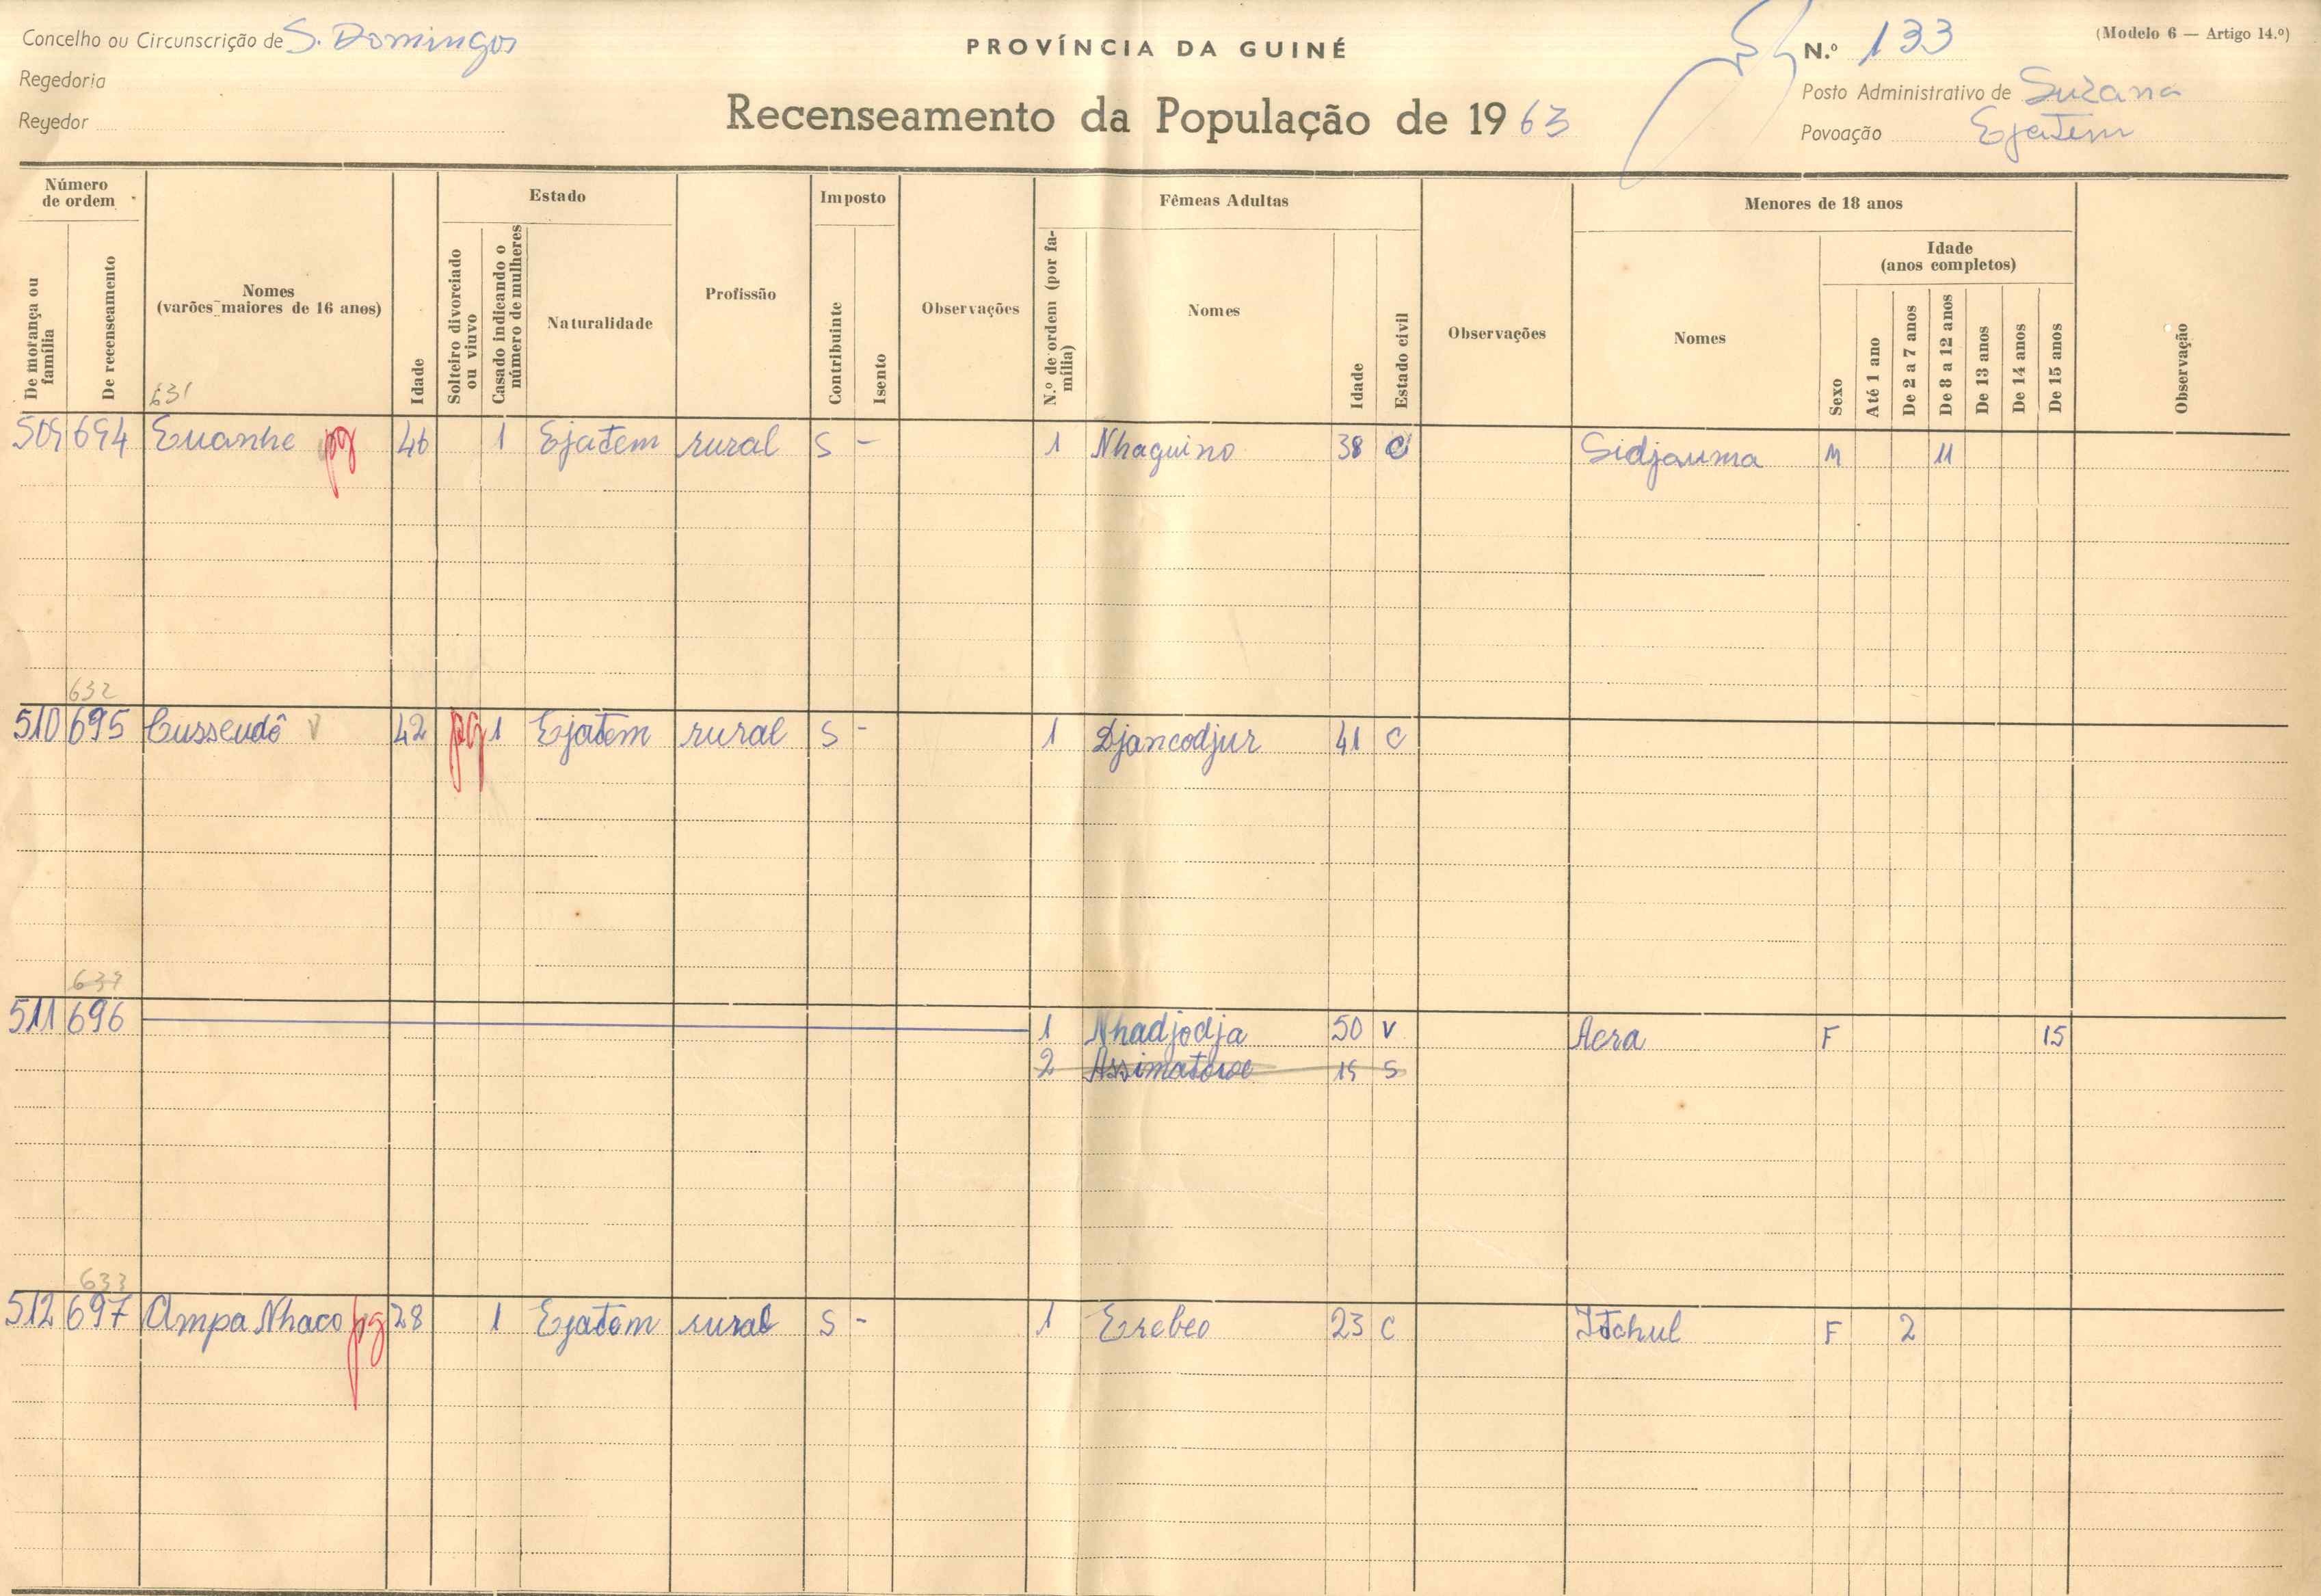 Concelho ou Circunscrição de S. Domingos
PROVÍNCIA DA GUINÉ
N.º 133
(Modelo 6 — Artigo 14.º)
Regedoria
Posto Administrativo de Suzana
Regedor
Recenseamento da População de 1963
Povoação Ejatem
Número de ordem
Estado
Imposto
Fêmeas Adultas
Menores de 18 anos
De morança ou família
De recenseamento
Nomes (varões maiores de 16 anos)
Idade
Solteiro divorciado ou viuvo
Casado indicando o número de mulheres
Naturalidade
Profissão
Contribuinte
Isento
Observações
N.º de ordem (por família)
Nomes
Idade
Estado civil
Observações
Nomes
Sexo
Idade (anos completos)
Até 1 ano
De 2 a 7 anos
De 8 a 12 anos
De 13 anos
De 14 anos
De 15 anos
Observação
631
509 694 Euanhe pg 46 1 Ejatem rural S - 1 Nhaguino 38 C Sidjauma M 11
632
510 695 Cussendô V 42 pg 1 Ejatem rural S - 1 Djancodjur 41 C
511 696 1 Nhadjodja 50 V Acra F 15
2 15 S
633
512 697 Ampa Nhaco pg 28 1 Ejatem rural S - 1 Erebeo 23 C Itchul F 2